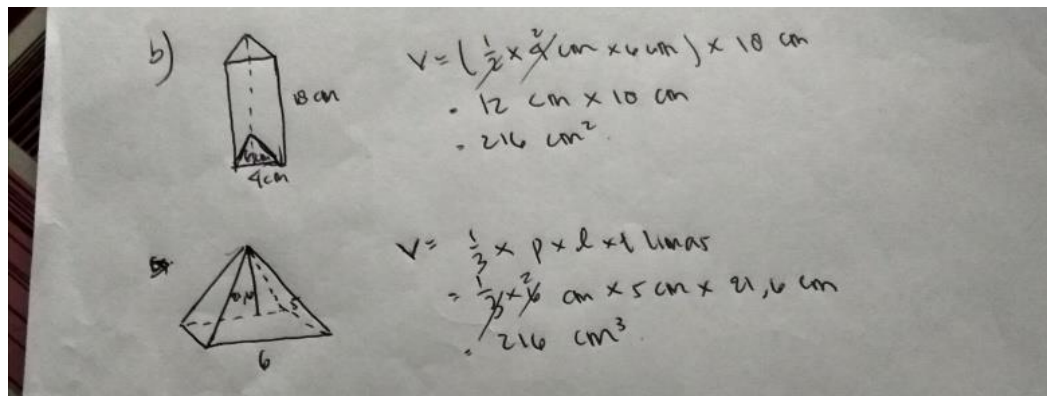 b)
18 cm
4cm
V = ( 1/2 × 4 2 cm × 6 cm ) × 18 cm
= 12 cm × 18 cm
= 216 cm²
5
6
V = 1/3 × p × l × t limas
= 1/3 × 6 2 cm × 5 cm × 21,6 cm
= 216 cm³